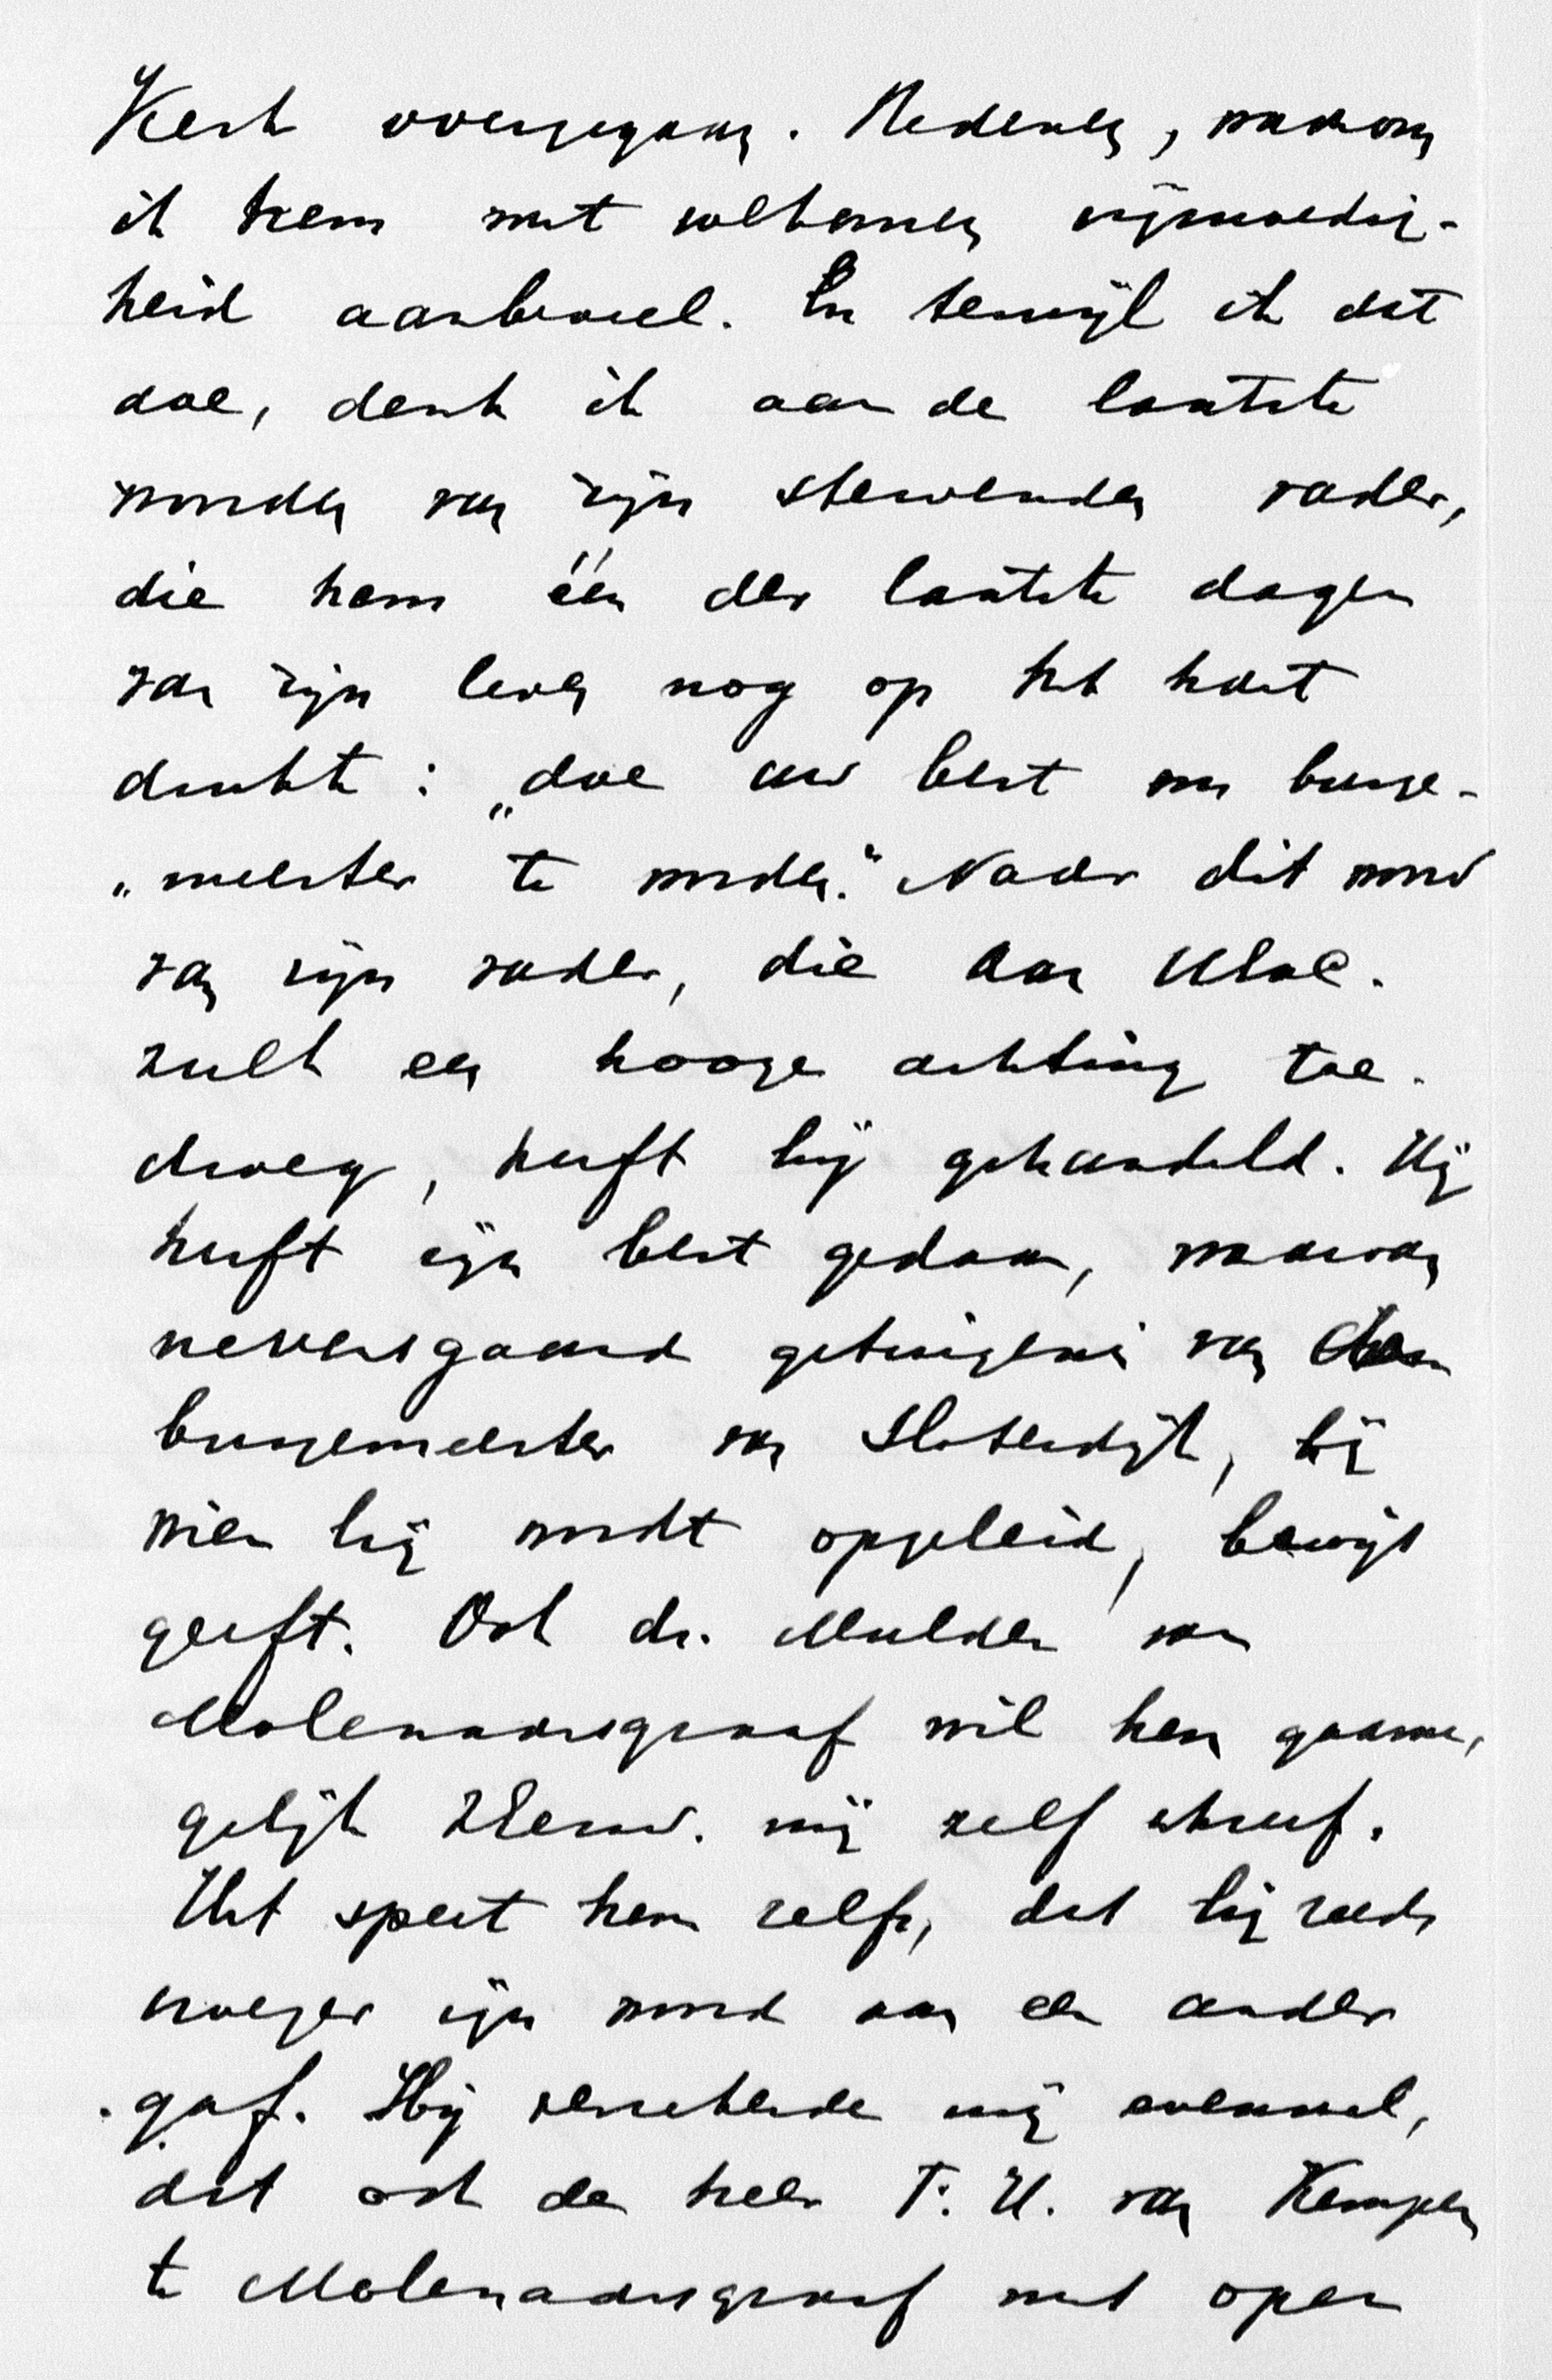 Kerk overgegaan. Redenen, waarom
ik hem met volkomen vrijmoedig-
heid aanbeveel. En terwijl ik dat
doe, denk ik aan de laatste
woorden van zijn stervenden vader,
die hem één der laatste dagen
van zijn leven nog op het hart
drukte: „doe uw best om burge-
„meester te worden." Naar dit woord
van zijn vader, die aan UEd.
zulk een hooge achting toe-
droeg, heeft hij gehandeld. Hij
heeft zijn best gedaan, waarvan
nevensgaand getuigenis van den
burgemeester van Sloterdijk, bij
wien hij wordt opgeleid, bewijs
geeft. Ook dr. Mulder van
Molenaarsgraaf wil hem gaarne,
gelijk ZEerw. mij zelf schreef.
Het speet hem zelfs, dat hij reeds
vroeger zijn woord aan een ander
gaf. Hij verzekerde mij evenwel,
dat ook de heer T. H. van Kempen
te Molenaarsgraaf met open